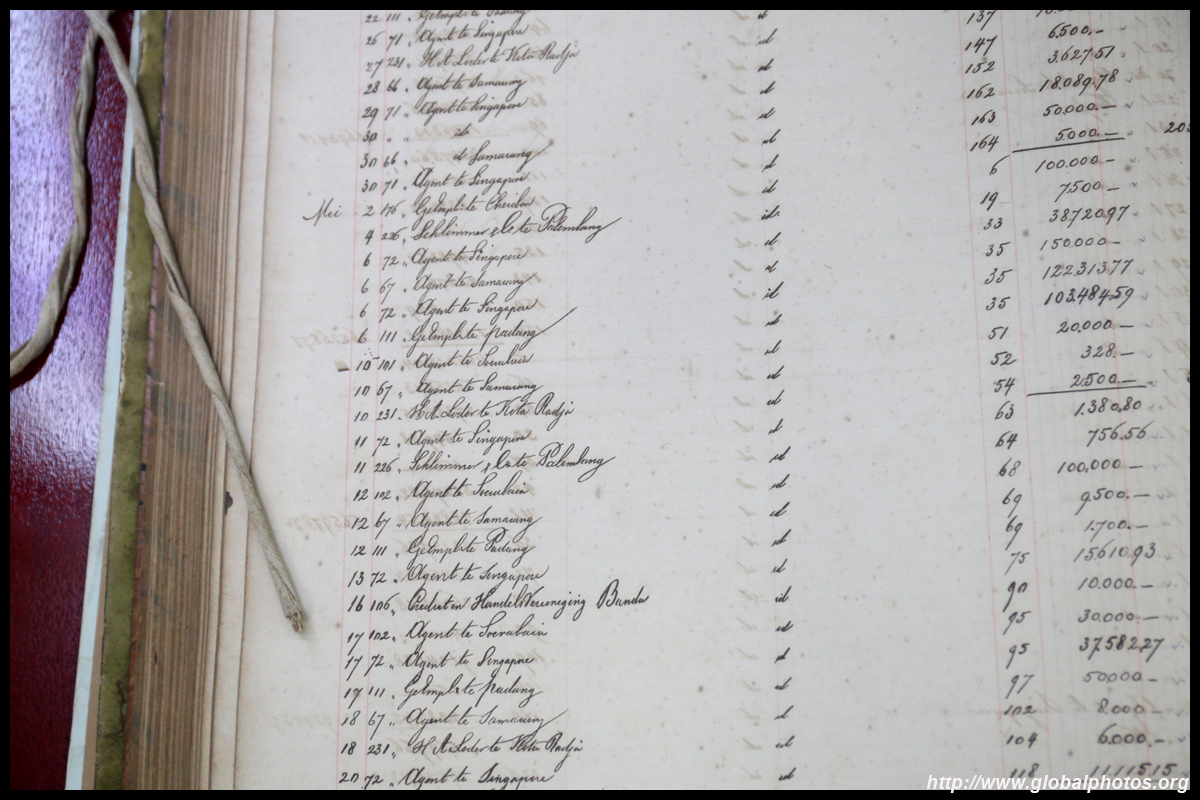 22 111 " GeEmpl: te Padang id 137
26 71 " Agent te Singapore id 147 6.500.—
27 231 " H A Loder te Kota Radja id 152 3.627 51
28 66 " Agent te Samarang id 162 18.089.78
29 71 " Agent te Singapore id 163 50.000.—
30 " " id id 164 5000.—
30 66 " id Samarang id 6 100.000.—
30 71 " Agent te Singapore id 19 7500.—
Mei 2 176 " GeEmpl: te Cheribon id 33 38720.97
4 226 " Schlimmer & Co te Palembang id 35 150.000.—
6 72 " Agent te Singapore id 35 12231377
6 67 " Agent te Samarang id 35 103.484.59
6 72 " Agent te Singapore id 51 20.000.—
6 111 " GeEmpl: te Padang id 52 328.—
10 101 " Agent te Soerabaia id 54 2.500.—
10 67 " Agent te Samarang id 63 1.380.80
10 231 " H A. Loder te Kota Radja id 64 756.56
11 72 " Agent te Singapore id 68 100.000.—
11 226 " Schlimmer & Co te Palembang id 69 9.500.—
12 102 " Agent te Soerabaia id 69 1.700.—
12 67 " Agent te Samarang id 75 15610.93
12 111 " GeEmpl: te Padang id 90 10.000.—
13 72 " Agent te Singapore id 95 30.000.—
16 106 " Crediet en HandelsVereeniging Banda id 95 37.582.27
17 102 " Agent te Soerabaia id 97 50000.—
17 72 " Agent te Singapore id 102 8.000—
17 111 " GeEmpl: te Padang id 104 6.000.—
18 67 " Agent te Samarang id 118 11.115.15
18 231 " H A Loder te Kota Radja id
20 72 " Agent te Singapore id
http://www.globalphotos.org